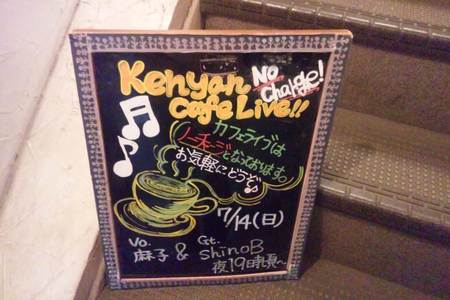 Kenyan
No Charge!
Cafe Live!!
カフェライブは
ノーチャージとなっております。
お気軽にどうぞ♪
7/14(日)
Vo. Gt.
麻子 & ShinoB
夜19時頃~